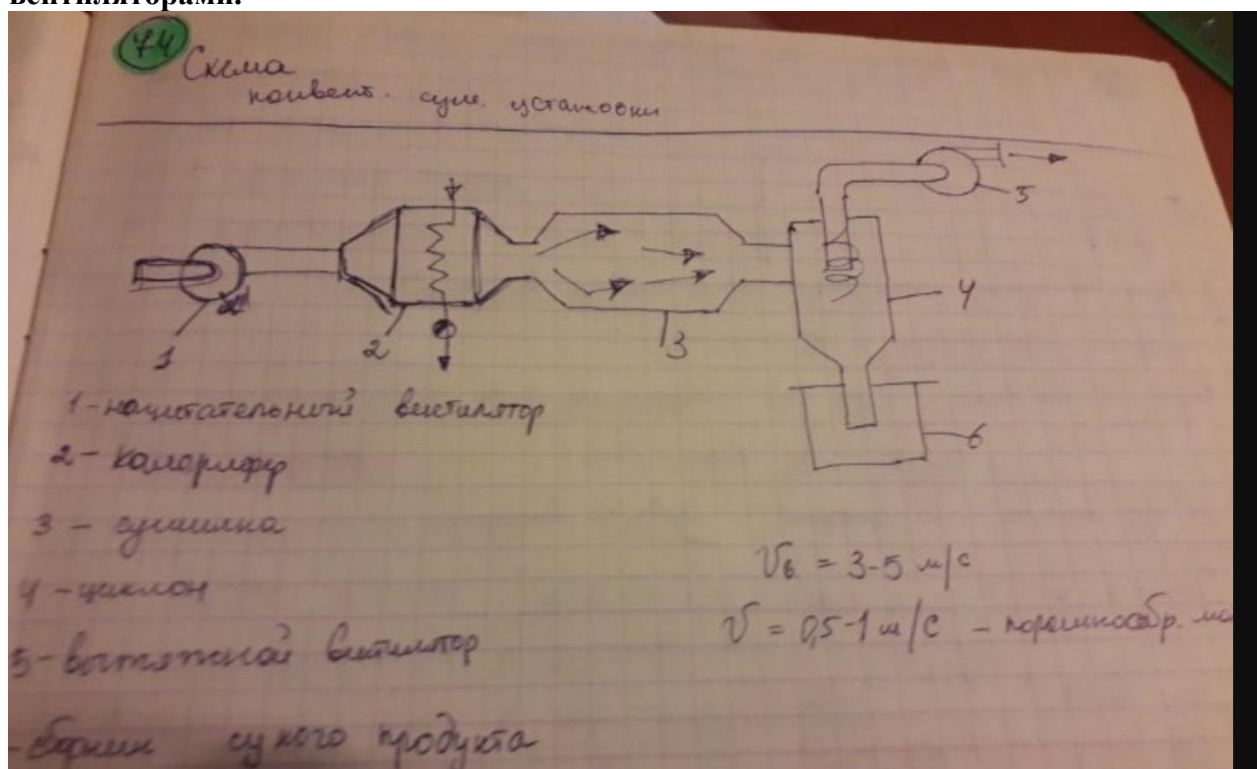 вентиляторами.
74
Схема
конвект. суш. установки
5
4
1
2
3
6
1-нагнетательный вентилятор
2- калорифер
3 - сушилка
4 - циклон
5-вытяжной вентилятор
- сборник сухого продукта
Vв = 3-5 м/с
V = 0,5-1 м/с - порошкообр.